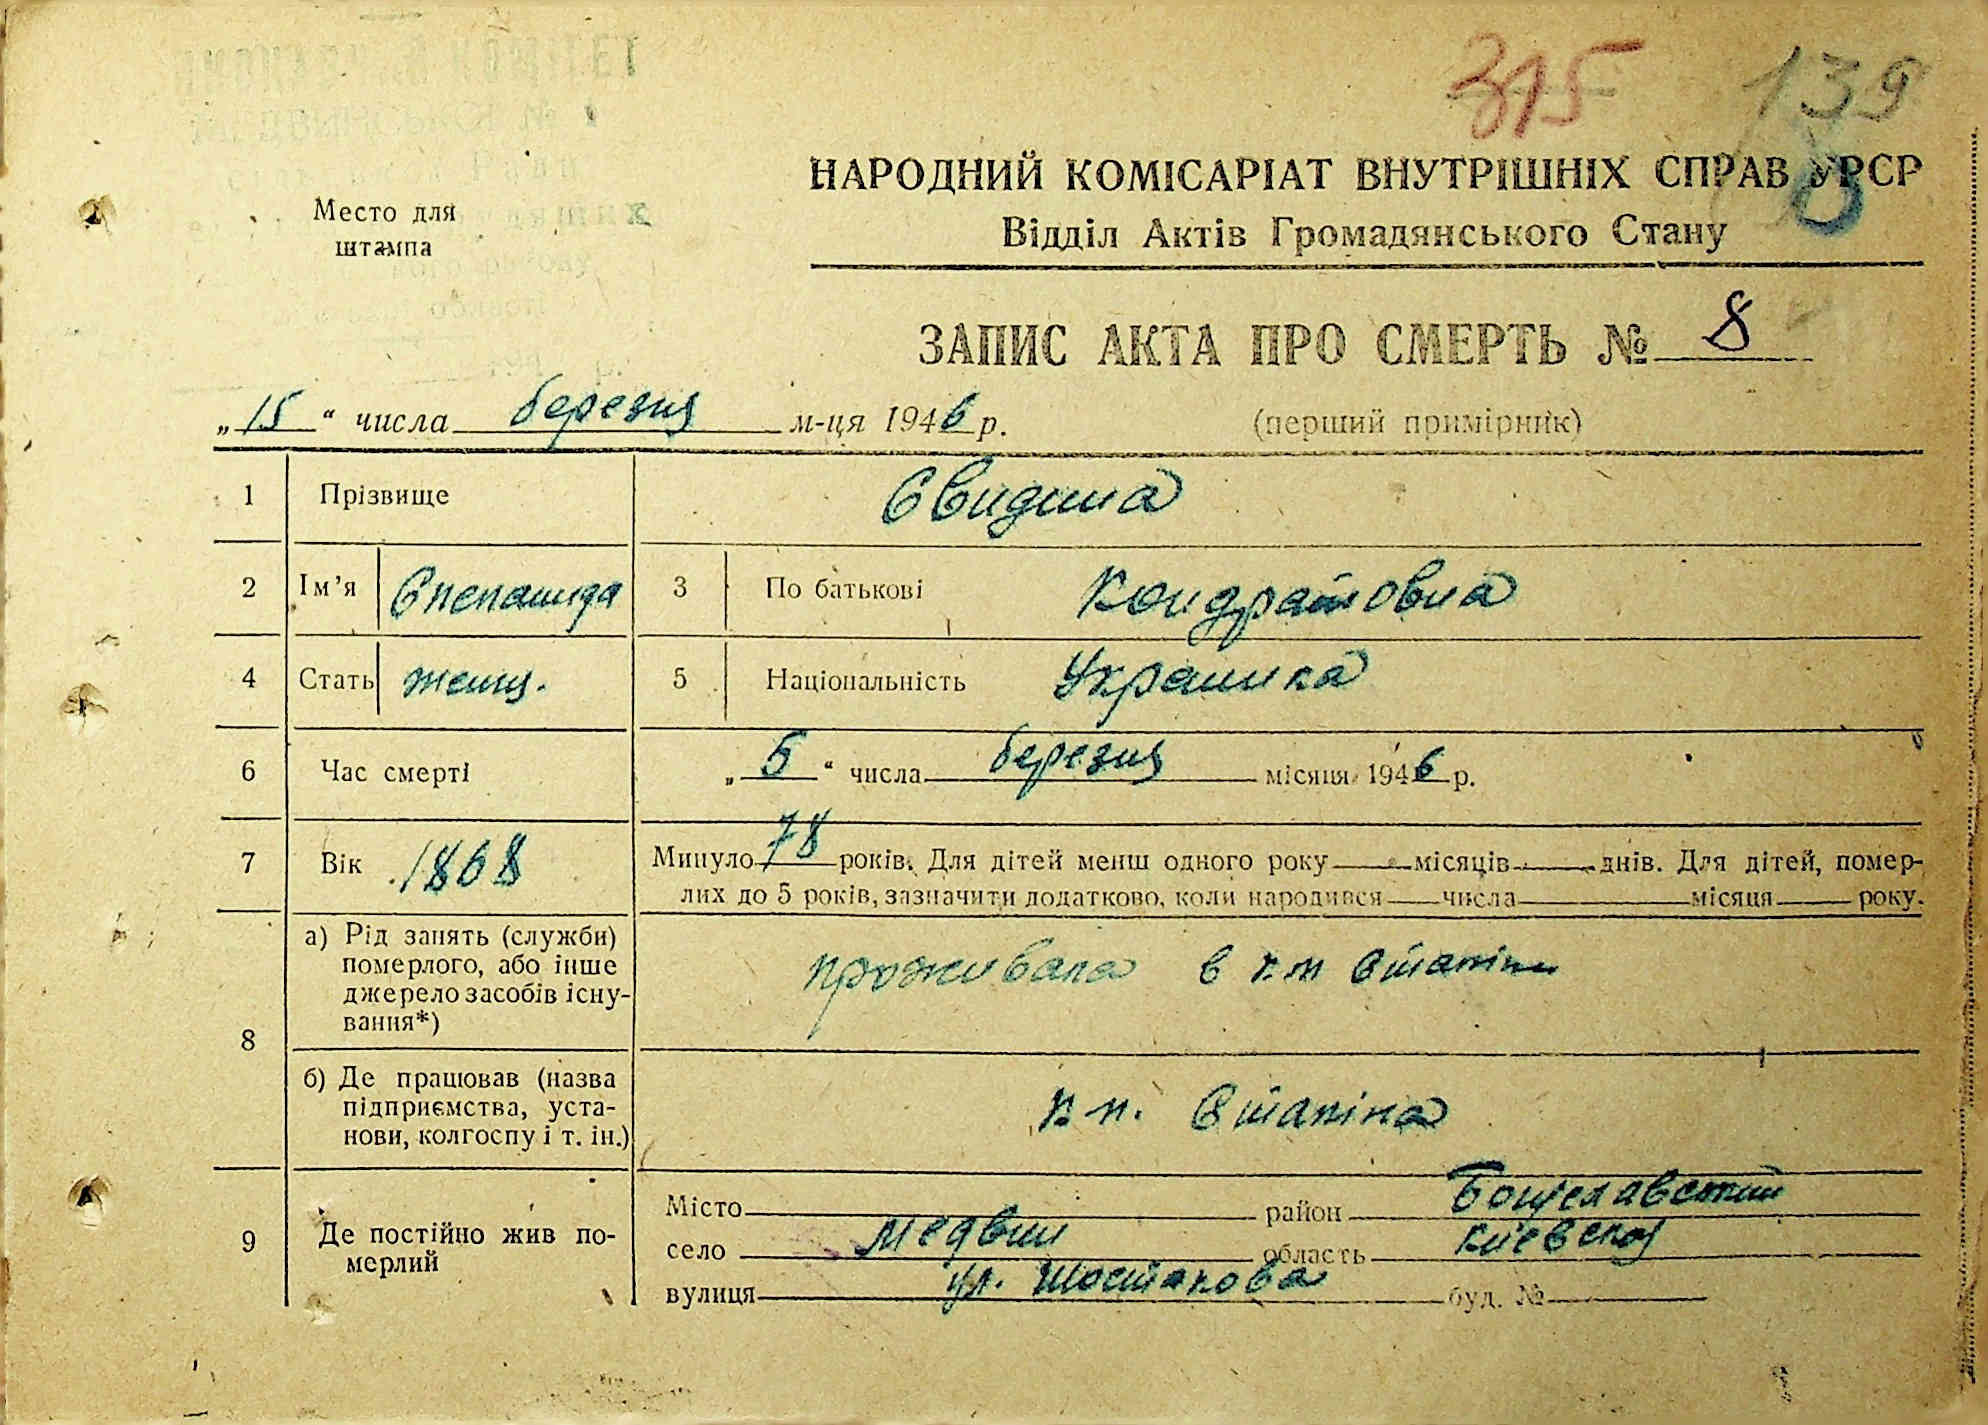 315 139
8
НАРОДНИЙ КОМІСАРІАТ ВНУТРІШНІХ СПРАВ УРСР
Место для
штампа
Відділ Актів Громадянського Стану
ЗАПИС АКТА ПРО СМЕРТЬ № 8
„15“ числа березня м-ця 1946 р. (перший примірник)
1 Прізвище Свидина
2 Ім’я Степанида 3 По батькові Кондратовна
4 Стать женщ. 5 Національність Украинка
6 Час смерті „5“ числа березня місяця 1946 р.
7 Вік 1868 Минуло 78 років. Для дітей менш одного року місяців днів. Для дітей, помер-
лих до 5 років, зазначити додатково, коли народився числа місяця року.
8 а) Рід занять (служби)
померлого, або інше
джерело засобів існу-
вання*)
проживала в к-п Сталіна
б) Де працював (назва
підприємства, уста-
нови, колгоспу і т. ін.)
к-п. Сталіна
9 Де постійно жив по-
мерлий
Місто район Богуславский
село Медвин область Киевская
вулиця ул. Шостакова буд. №